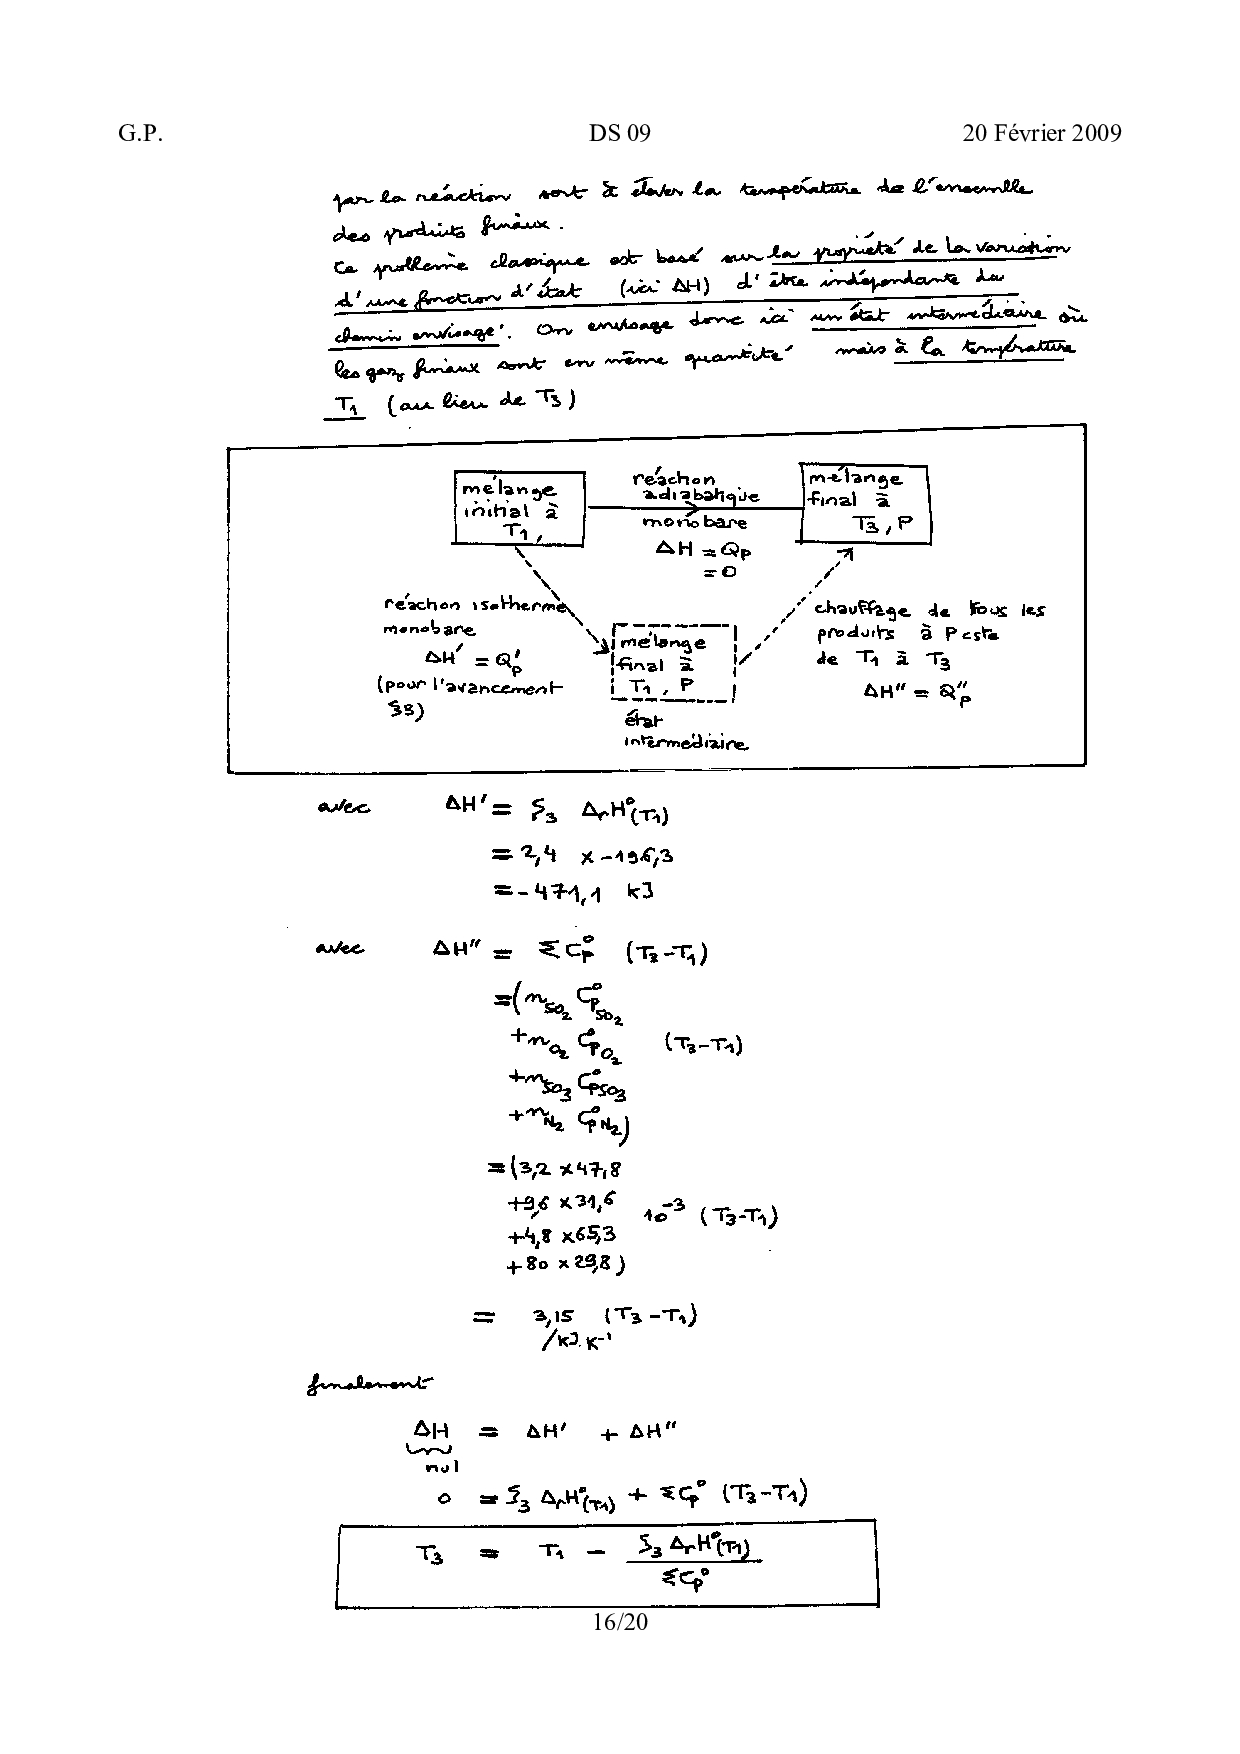 G.P. DS 09 20 Février 2009
par la réaction sont à élever la température de l'ensemble
des produits finaux.
Ce problème classique est basé sur la propriété de la variation
d'une fonction d'état (ici ΔH) d'être indépendante du
chemin envisagé. On envisage donc ici un état intermédiaire où
les gaz finaux sont en même quantité mais à la température
T1 (au lieu de T3)
mélange
initial à
T1,
réaction
adiabatique
monobare
ΔH = Qp
= 0
mélange
final à
T3, P
réaction isotherme
monobare
ΔH' = Q'p
(pour l'avancement
ξ3)
mélange
final à
T1, P
état
intermédiaire
chauffage de tous les
produits à P cste
de T1 à T3
ΔH'' = Q''p
avec ΔH' = ξ3 ΔrH°(T1)
= 2,4 x -196,3
= -471,1 kJ
avec ΔH'' = ΣCp° (T3-T1)
=(nSO2 Cp°SO2
+nO2 Cp°O2 (T3-T1)
+nSO3 Cp°SO3
+nN2 Cp°N2)
=(3,2 x 47,8
+9,6 x 31,6 10-3 (T3-T1)
+4,8 x 65,3
+80 x 29,8)
= 3,15 (T3-T1)
/kJ.K-1
finalement
ΔH = ΔH' + ΔH''
nul
0 = ξ3 ΔrH°(T1) + ΣCp° (T3-T1)
T3 = T1 - ξ3 ΔrH°(T1)
ΣCp°
16/20